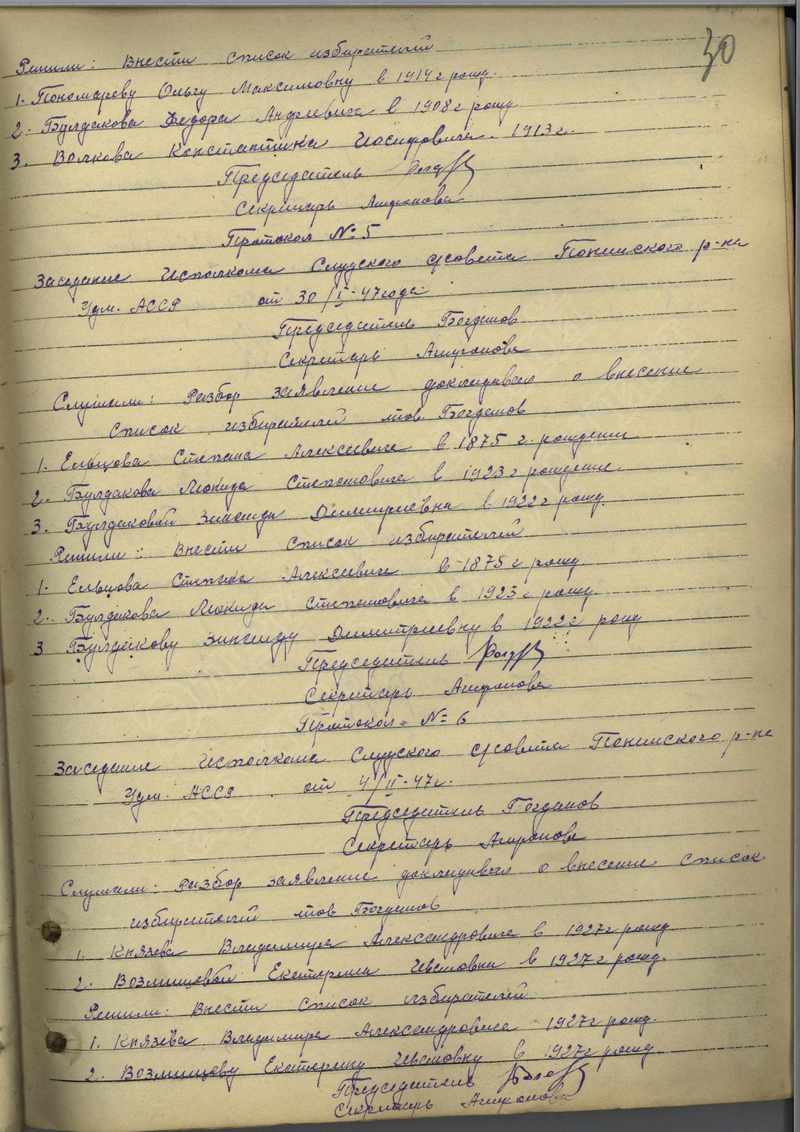 30
Решили: Внести список избирателей
1. Пономареву Ольгу Максимовну в 1914 г рожд.
2. Булдакова Федора Андреевича в 1908 г рожд
3. Волкова Константина Иосифовича. 1913 г.
Председатель
Секретарь Агафонова
Протокол № 5
Заседание Исполкома Слудского с/совета Понинского р-на
Удм. АССР от 30/I-47 года
Председатель Богданов
Секретарь Агафонова
Слушали: Разбор заявление докладывал о внесение
список избирателей тов. Богданов
1. Ельцова Степана Алексеевича в 1875 г. рождения
2. Булдакова Леонида Степановича в 1923 г рождение.
3. Булдаковой Зинаиды Димитриевны в 1922 г рожд.
Решили: Внести список избирателей
1. Ельцова Степана Алексеевича в 1875 г рожд
2. Булдакова Леонида Степановича в 1923 г рожд.
3 Булдакову Зинаиду Димитриевну в 1922 г рожд
Председатель
Секретарь Агафонова
Протокол № 6
Заседание Исполкома Слудского с/совета Понинского р-на
Удм. АССР от 4/II-47 г.
Председатель Богданов
Секретарь Агафонова
Слушали: Разбор заявление докладывал о внесение список
избирателей тов Богданов
1. Князева Владимира Александровича в 1927 г рожд
2. Возмищевой Екатерины Ивановны в 1927 г рожд.
Решили: Внести список избирателей
1. Князева Владимира Александровича 1927 г рожд.
2. Возмищеву Екатерину Ивановну в 1927 г рожд
Председатель
Секретарь Агафонова